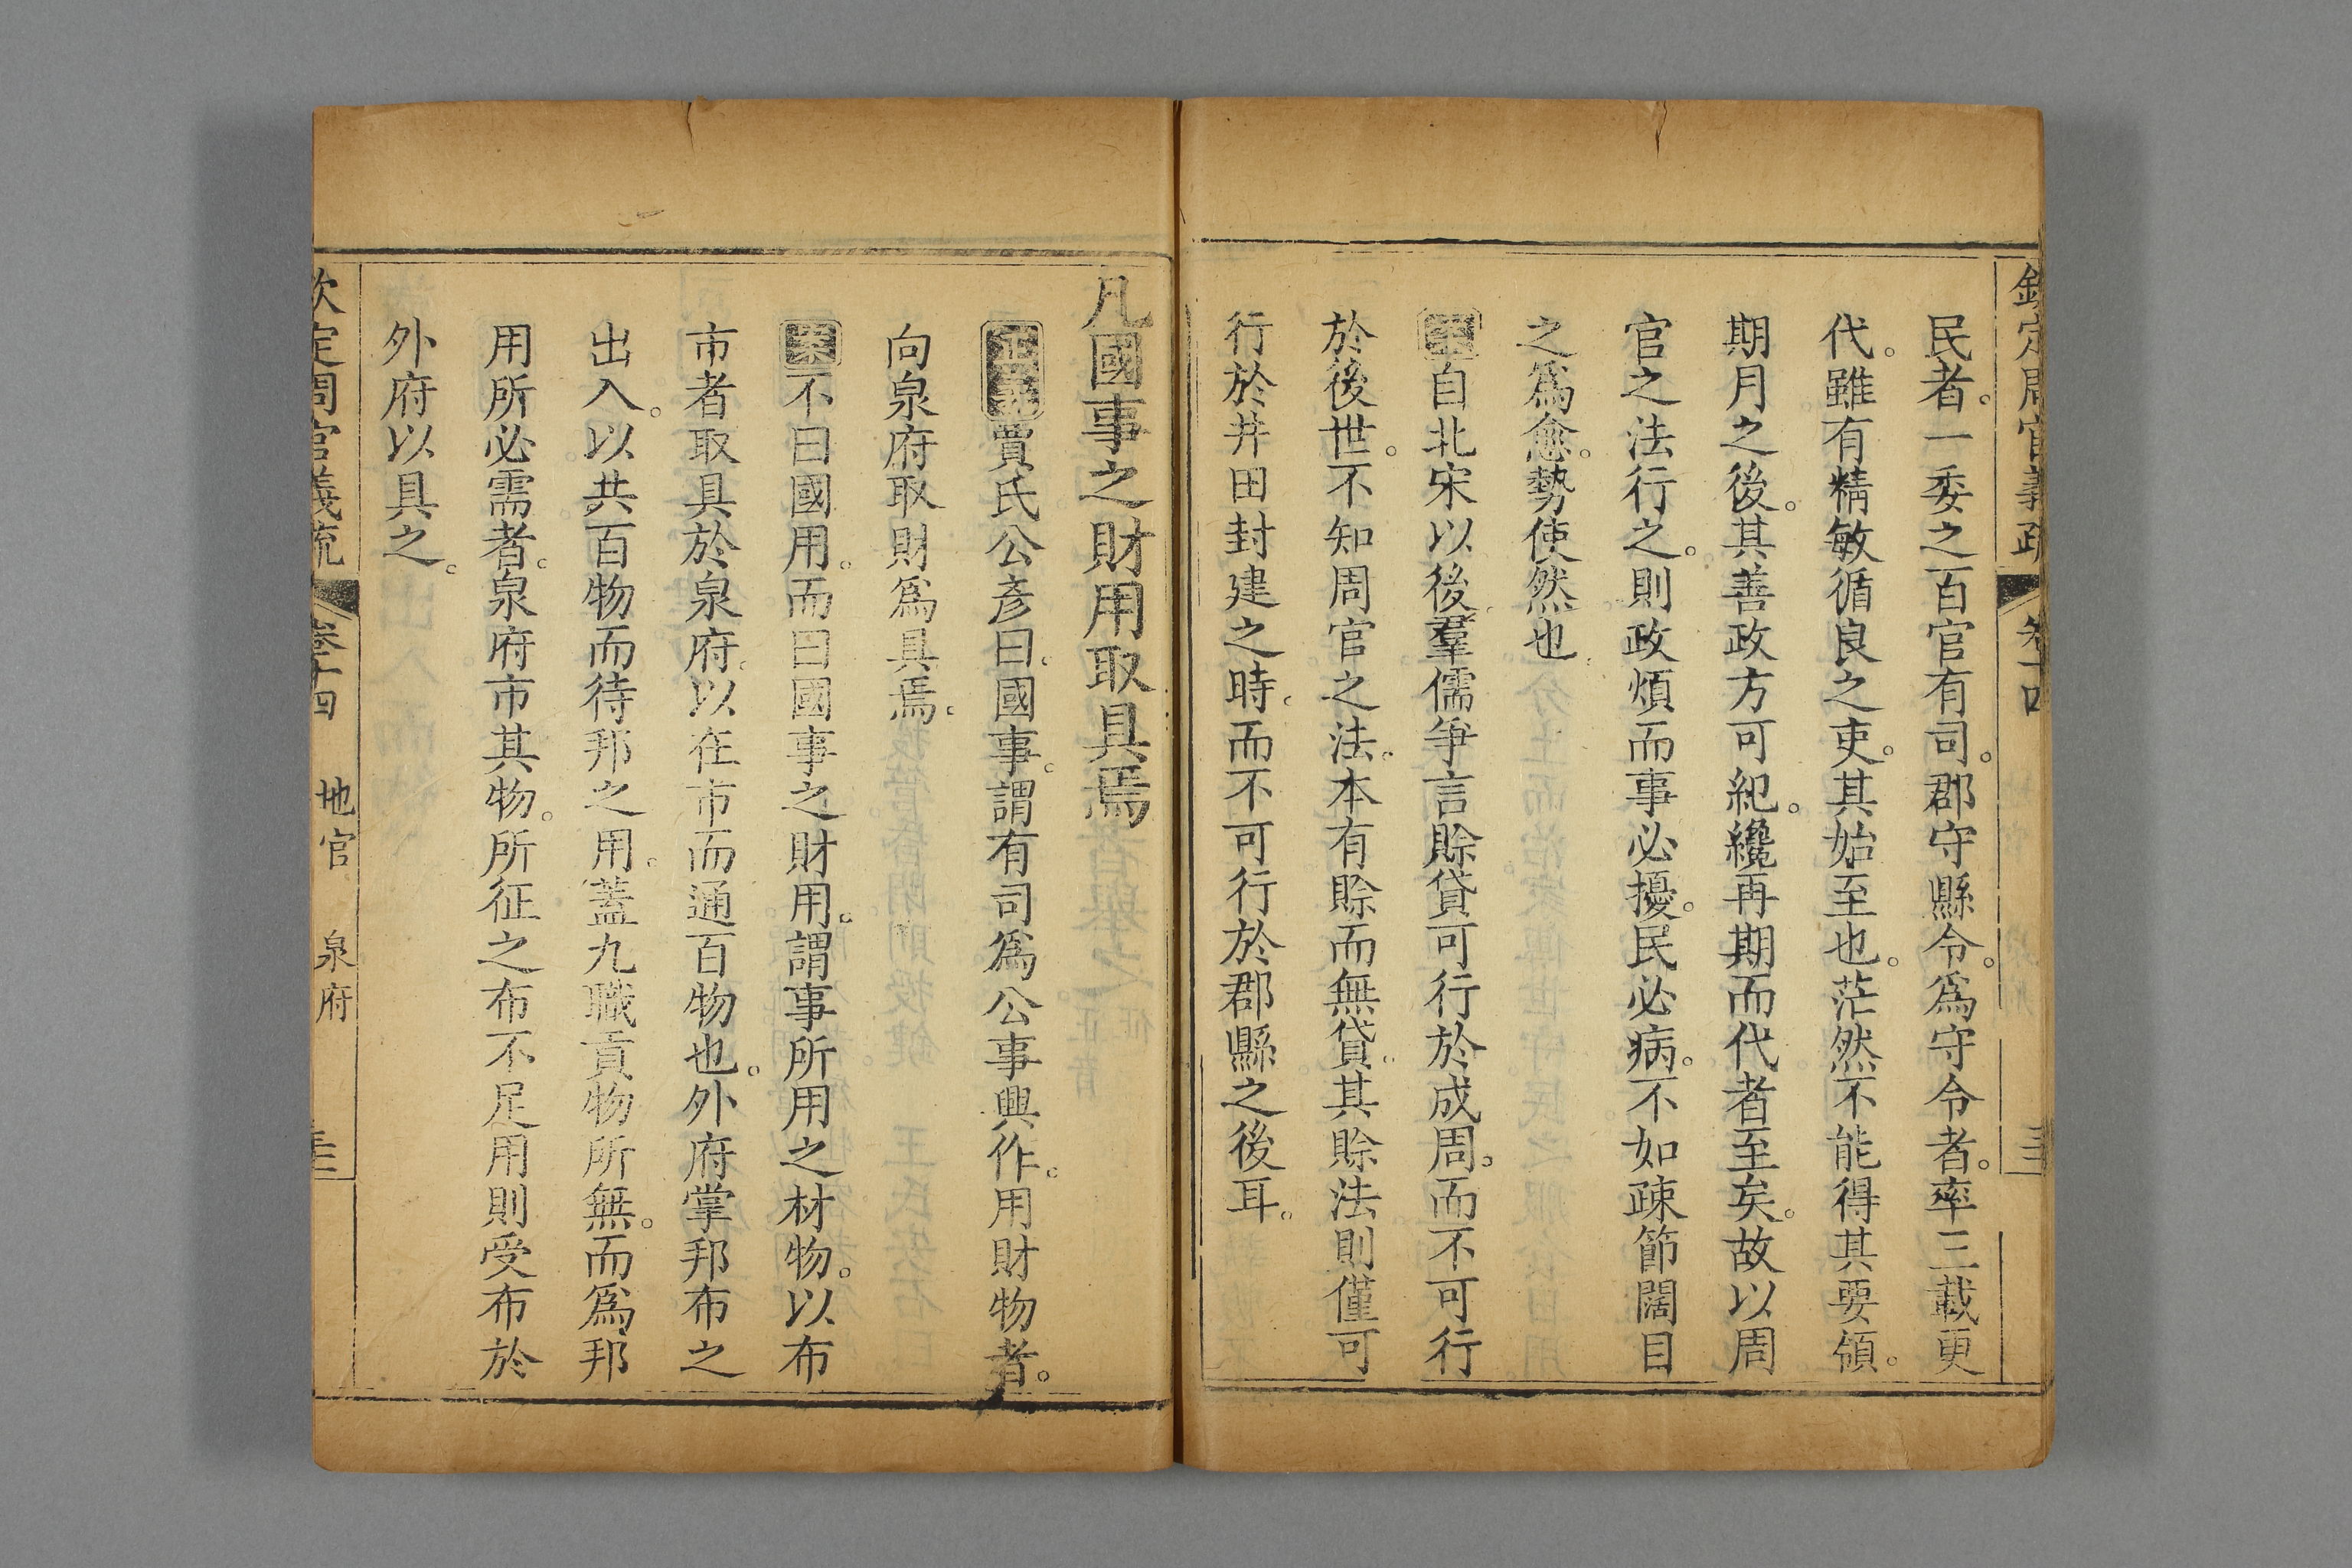 欽定周官義疏 卷十四
民者。一委之百官有司。郡守縣令。爲守令者。率三載更
代。雖有精敏循良之吏。其始至也。茫然不能得其要領。
期月之後。其善政方可紀。纔再期而代者至矣。故以周
官之法行之。則政煩而事必擾。民必病。不如疎節闊目
之爲愈。勢使然也。
案自北宋以後。羣儒爭言賒貸可行於成周。而不可行
於後世。不知周官之法。本有賒而無貸。其賒法則僅可
行於井田封建之時。而不可行於郡縣之後耳。
凡國事之財用取具焉
正義賈氏公彥曰。國事。謂有司爲公事興作。用財物者。
向泉府取財爲具焉。
案不曰國用。而曰國事之財用。謂事所用之材物。以布
市者取具於泉府。以在市而通百物也。外府掌邦布之
出入。以共百物而待邦之用。蓋九職貢物所無。而爲邦
用所必需者。泉府市其物。所征之布不足用則受布於
外府以具之。
欽定周官義疏 卷十四 地官 泉府